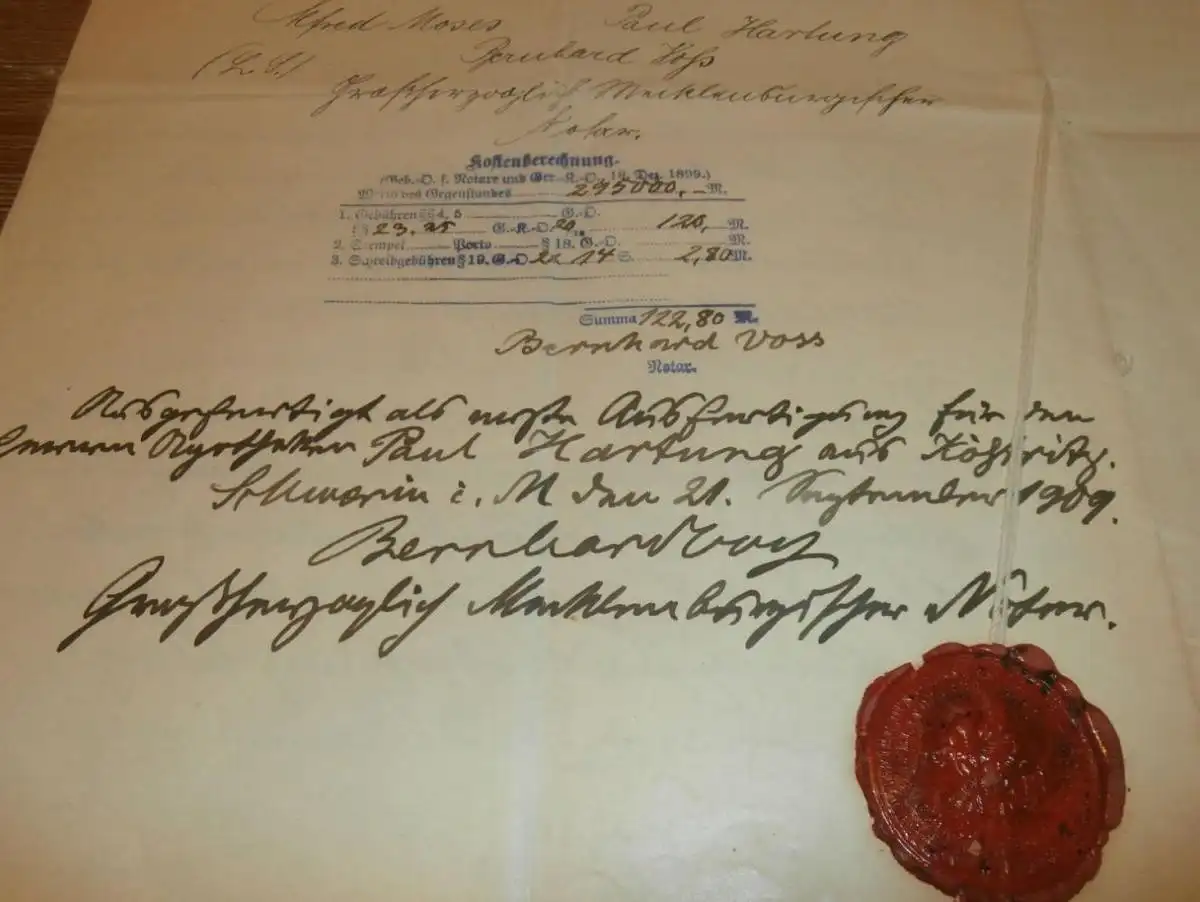 Alfred Moses Paul Hartung
(L. S.) Bernhard Voss
Großherzoglich Mecklenburgischer
Notar.
Kostenberechnung.
(Geb.-O. f. Notare und Ger.-K.-O. 18. Dez. 1899.)
Wert des Gegenstandes 295000,- M.
1. Gebühren §§ 4, 5 G.-O.
§ 23. 25 G.-K.-O. 120, M.
2. Stempel Porto § 18. G.-O. M.
3. Schreibgebühren § 19. G.-O 14 S. 2,80 M.
Summa 122,80 M.
Bernhard Voss
Notar.
Ausgefertigt als erste Ausfertigung für den
Herrn Apotheker Paul Hartung aus Köstritz.
Schwerin i. M den 21. September 1909.
Bernhard Voss
Großherzoglich Mecklenburgischer Notar.